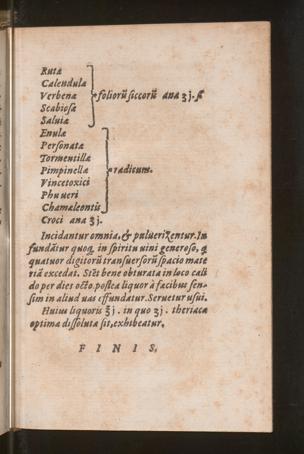 Rutæ
Calendulæ
Verbenæ foliorũ siccorũ ana ʒj.ß
Scabiosæ
Saluiæ
Enulæ
Personatæ
Tormentillæ
Pimpinellæ radicum.
Vincetoxici
Phu ueri
Chamæleontis
Croci ana ʒj.
Incidantur omnia, & puluerizentur. In
fundãtur quoq; in spiritu uini generoso, q
quatuor digitorũ transuersorũ spacio mate
riã excedat. Stẽt bene obturata in loco cali
do per dies octo. postea liquor à fæcibus sen-
sim in aliud uas effundatur. Seruetur usui.
Huius liquoris ℥j. in quo ʒj. theriacæ
optimæ dissoluta sit, exhibeatur.
FINIS.